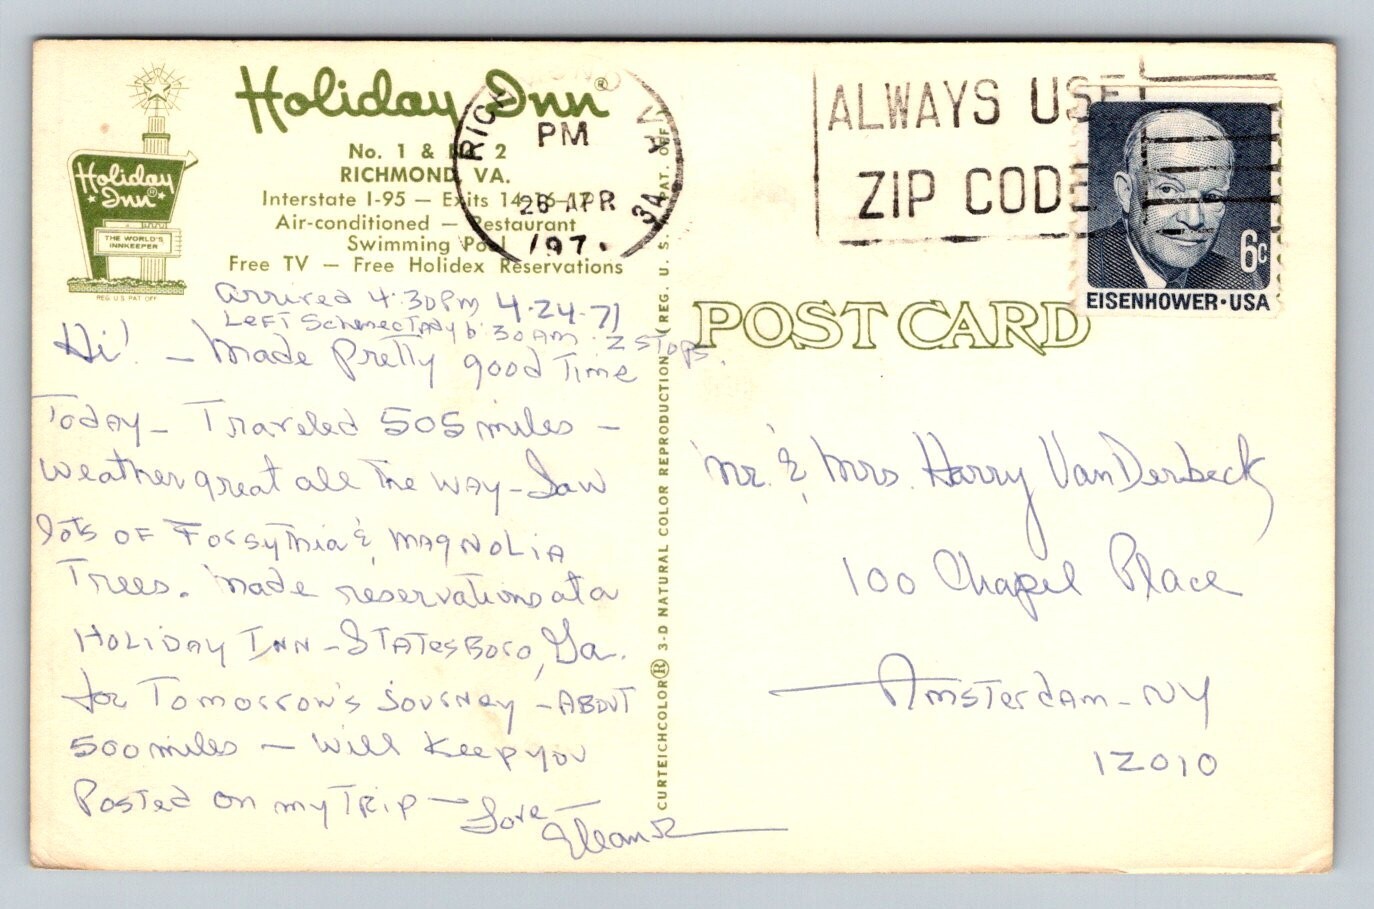 Holiday Inn®
No. 1 & 2
RICHMOND, VA.
Interstate I-95 — Exits 14-16-17
Air-conditioned — Restaurant
Swimming Pool
Free TV — Free Holidex Reservations
Holiday
Inn®
THE WORLD'S
INNKEEPER
REG. U.S. PAT. OFF.
RICHMOND VA
PM
26 APR
197
34
ALWAYS USE
ZIP CODE
6c
EISENHOWER·USA
POST CARD
CURTEICHCOLOR® 3-D NATURAL COLOR REPRODUCTION (REG. U. S. PAT. OFF.)
Arrived 4:30 PM 4-24-71
Left Schenectady 6:30 AM 2 stops.
Hi! — Made pretty good time
Today — Traveled 505 miles —
Weather great all the way — Saw
lots of Forsythia & Magnolia
Trees. Made reservations at a
Holiday Inn — Statesboro, Ga.
for Tomorrow's journey — about
500 miles — Will keep you
Posted on my Trip — Love —
Eleanor
Mr. & Mrs. Harry VanDerbeck
100 Chapel Place
Amsterdam - NY
12010